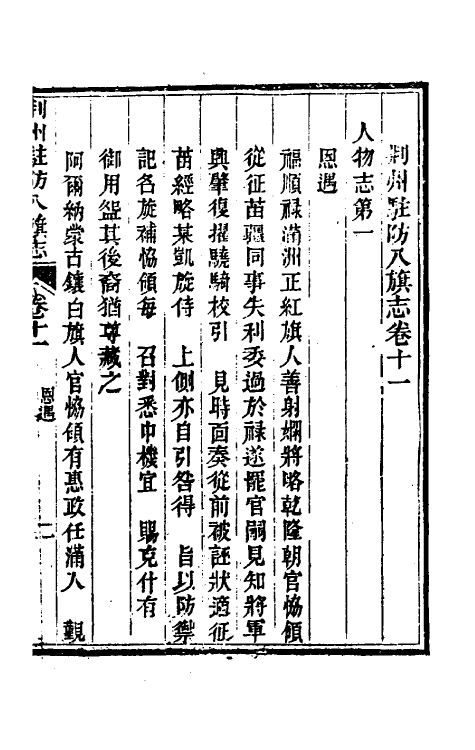 荆州駐防八旗志卷十一
人物志第一
恩遇
福順祿滿洲正紅旗人善射嫻將略乾隆朝官協領
從征苗疆同事失利委過於祿遂罷官嗣見知將軍
興肇復擢驍騎校引　見時面奏從前被誣狀適征
苗經略某凱旋侍　上側亦自引咎得　旨以防禦
記名旋補協領每　召對悉中機宜　賜克什有
御用盌其後裔猶尊藏之
阿爾納蒙古鑲白旗人官協領有惠政任滿入　覲
荆州駐防八旗志　卷十一　恩遇　一